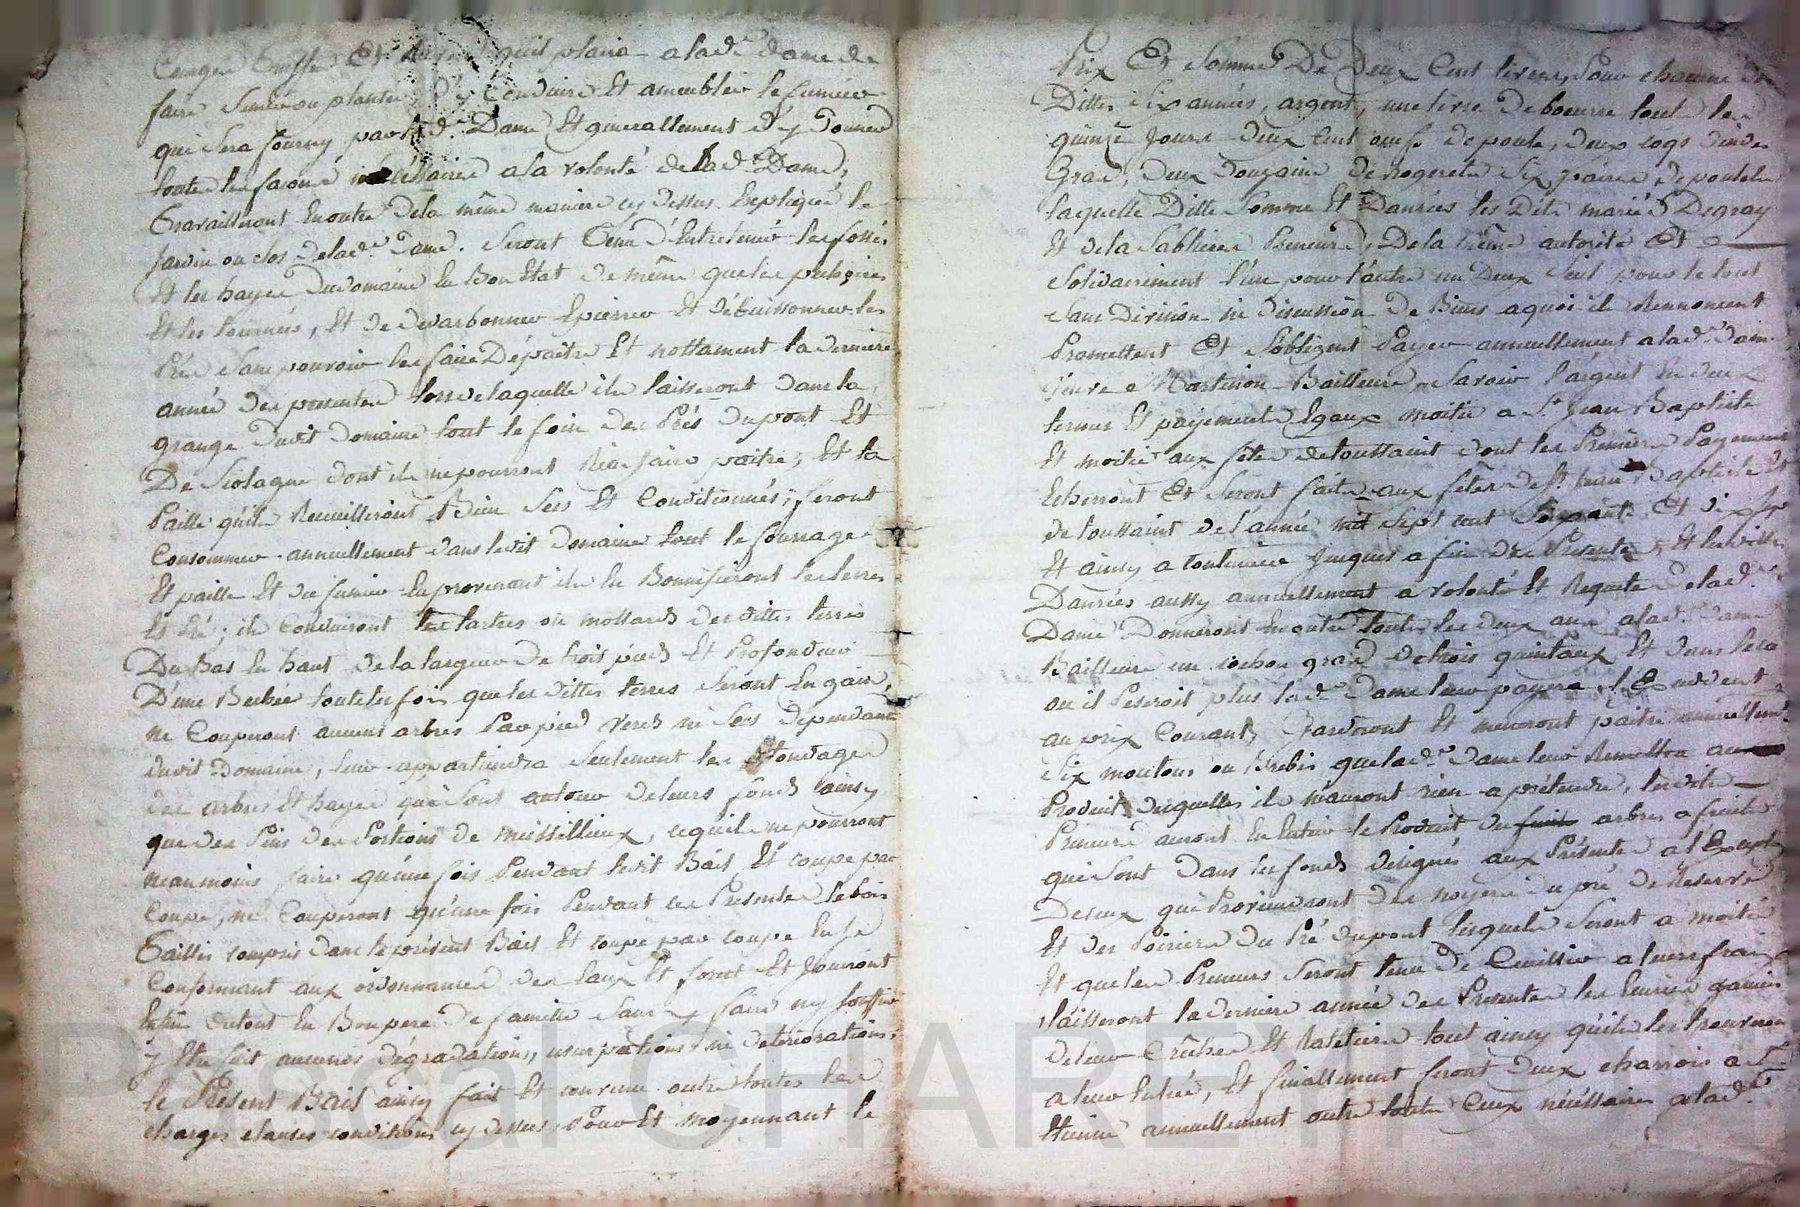 qu'il plaira a la de. dame de
faire semer ou planter, d'y Conduire Et ameublir le fumier
qui sera fourny par lad. Dame Et generallement d'y Donner
toutes les façons nécéssaires a la volonté de la de. Dame,
travailleront En outre de la même maniere cy dessus Expliquée le
Jardin ou clos de lad. Dame. Seront tenu d'Entretenir les fossés
Et les hayes Dudomaine En Bon Etat de même que les
Et les tournées, Et de Epierrer Et débuissonner les
Prés sans pouvoir les faire Dépaitre Et nottament la derniere
année des presentes lors de laquelle ils laisseront dans la
grange dudit Domaine tout le foin des Prés dupont Et
De dont ils ne pourront Rien faire paitre, Et la
Paille qu'ils Recueilleront Bien Secs Et Conditionnés; feront
Consommer annuellement dans ledit Domaine tout le fourrage
Et paille Et du fumier En provenant ils En Bonnifieront les terres
Et Pré; ils Conduiront les tartres ou mollards desdittes terres
Du Bas En haut de la largeur de trois pieds Et Profondeur
D'une Bechée toutes les fois que les dittes terres seront En gain,
ne Couperont aucuns arbres Par pied verds ni Secs dependants
dudit Domaine, leur appartiendra Seulement les
des arbres Et hayes qui Sont autour de leurs fonds ainsy
que des Pins des Portions de Missilieux, ce qu'ils ne pourront
neanmoins faire qu'une fois Pendant ledit Bail Et coupe par
Coupe, ne Couperont qu'une fois Pendant les Presentes le bois
Taillis compris dans le présent Bail Et coupe par coupe En se
Conformant aux ordonnances des Eaux Et foret Et Jouiront
Enfin du tout En Bon pere de famille sans y faire ny souffrir
y Etre fait aucunes dégradations, usurpations ni déteriorations.
le Présent Bail ainsy fait Et convenu outre toutes les
charges clauses conditions cy dessus, Pour Et moyennant le
Prix Et Somme De Deux Cent livres, Pour chacune des
Dittes Six années, argent, une livre De beurre tout les
quinze Jours deux Cent œufs de poule, deux coqs d'indes
Gras, deux Douzaine de Six paires de poulets
laquelle Ditte Somme Et Danrées les Dits mariés Degray
Et de la Sabliere Preneurs, De la même autorité Et
Solidairement l'un pour l'autre un Deux Seul pour le tout
Sans Division ni discussion De Biens aquoi ils Rennoncent
Promettent Et s'obligent Payer annuellement a lad. dame
Martinon Bailleure savoir l'argent En deux
termes Et payements Egaux moitié a St. Jean Baptiste
Et moitié aux fêtes de toussaint dont les Premiers Payements
Echerront Et Seront faits aux fêtes de St. Jean Baptiste Et
de toussaint de l'année mil Sept cent Soixante Et dix
Et ainsy a Continuer Jusques a fin des Presentes, Et lesdittes
Danrées aussy annuellement a volonté Et Requete de lad.
Dame Donneront En outre toutes les deux ans a lad. dame
Bailleure un cochon gras de trois quintaux Et dans le cas
ou il Peseroit plus lad. dame leur payera l'Excedent
au prix Courant, Garderont Et meneront paitre annuellemt.
Six moutons ou Brebis que lad. dame leur Remettra au
Produit desquelles ils n'auront rien a prétendre, lesdits
Preneurs auront En Entier le Produit des arbres a fruits
qui Sont Dans les fonds désignés aux Présentes a l'Exceptn.
De ceux qui Proviendront des noyers du pré de Reserve
Et des Poiriers du Pré dupont lesquels Seront a moitié
Et que les Preneurs Seront tenu de Cueillir a leurs frais
laisseront la derniere année des Presentes les Ecuries garnies
de leur Crêches Et Rateliers tout ainsy qu'ils les trouveront
a leur Entrée, Et finallement feront deux charrois a St.
Etienne annuellement outre toutes Ceux nécéssaires a lad.
Pascal CHAREYRON